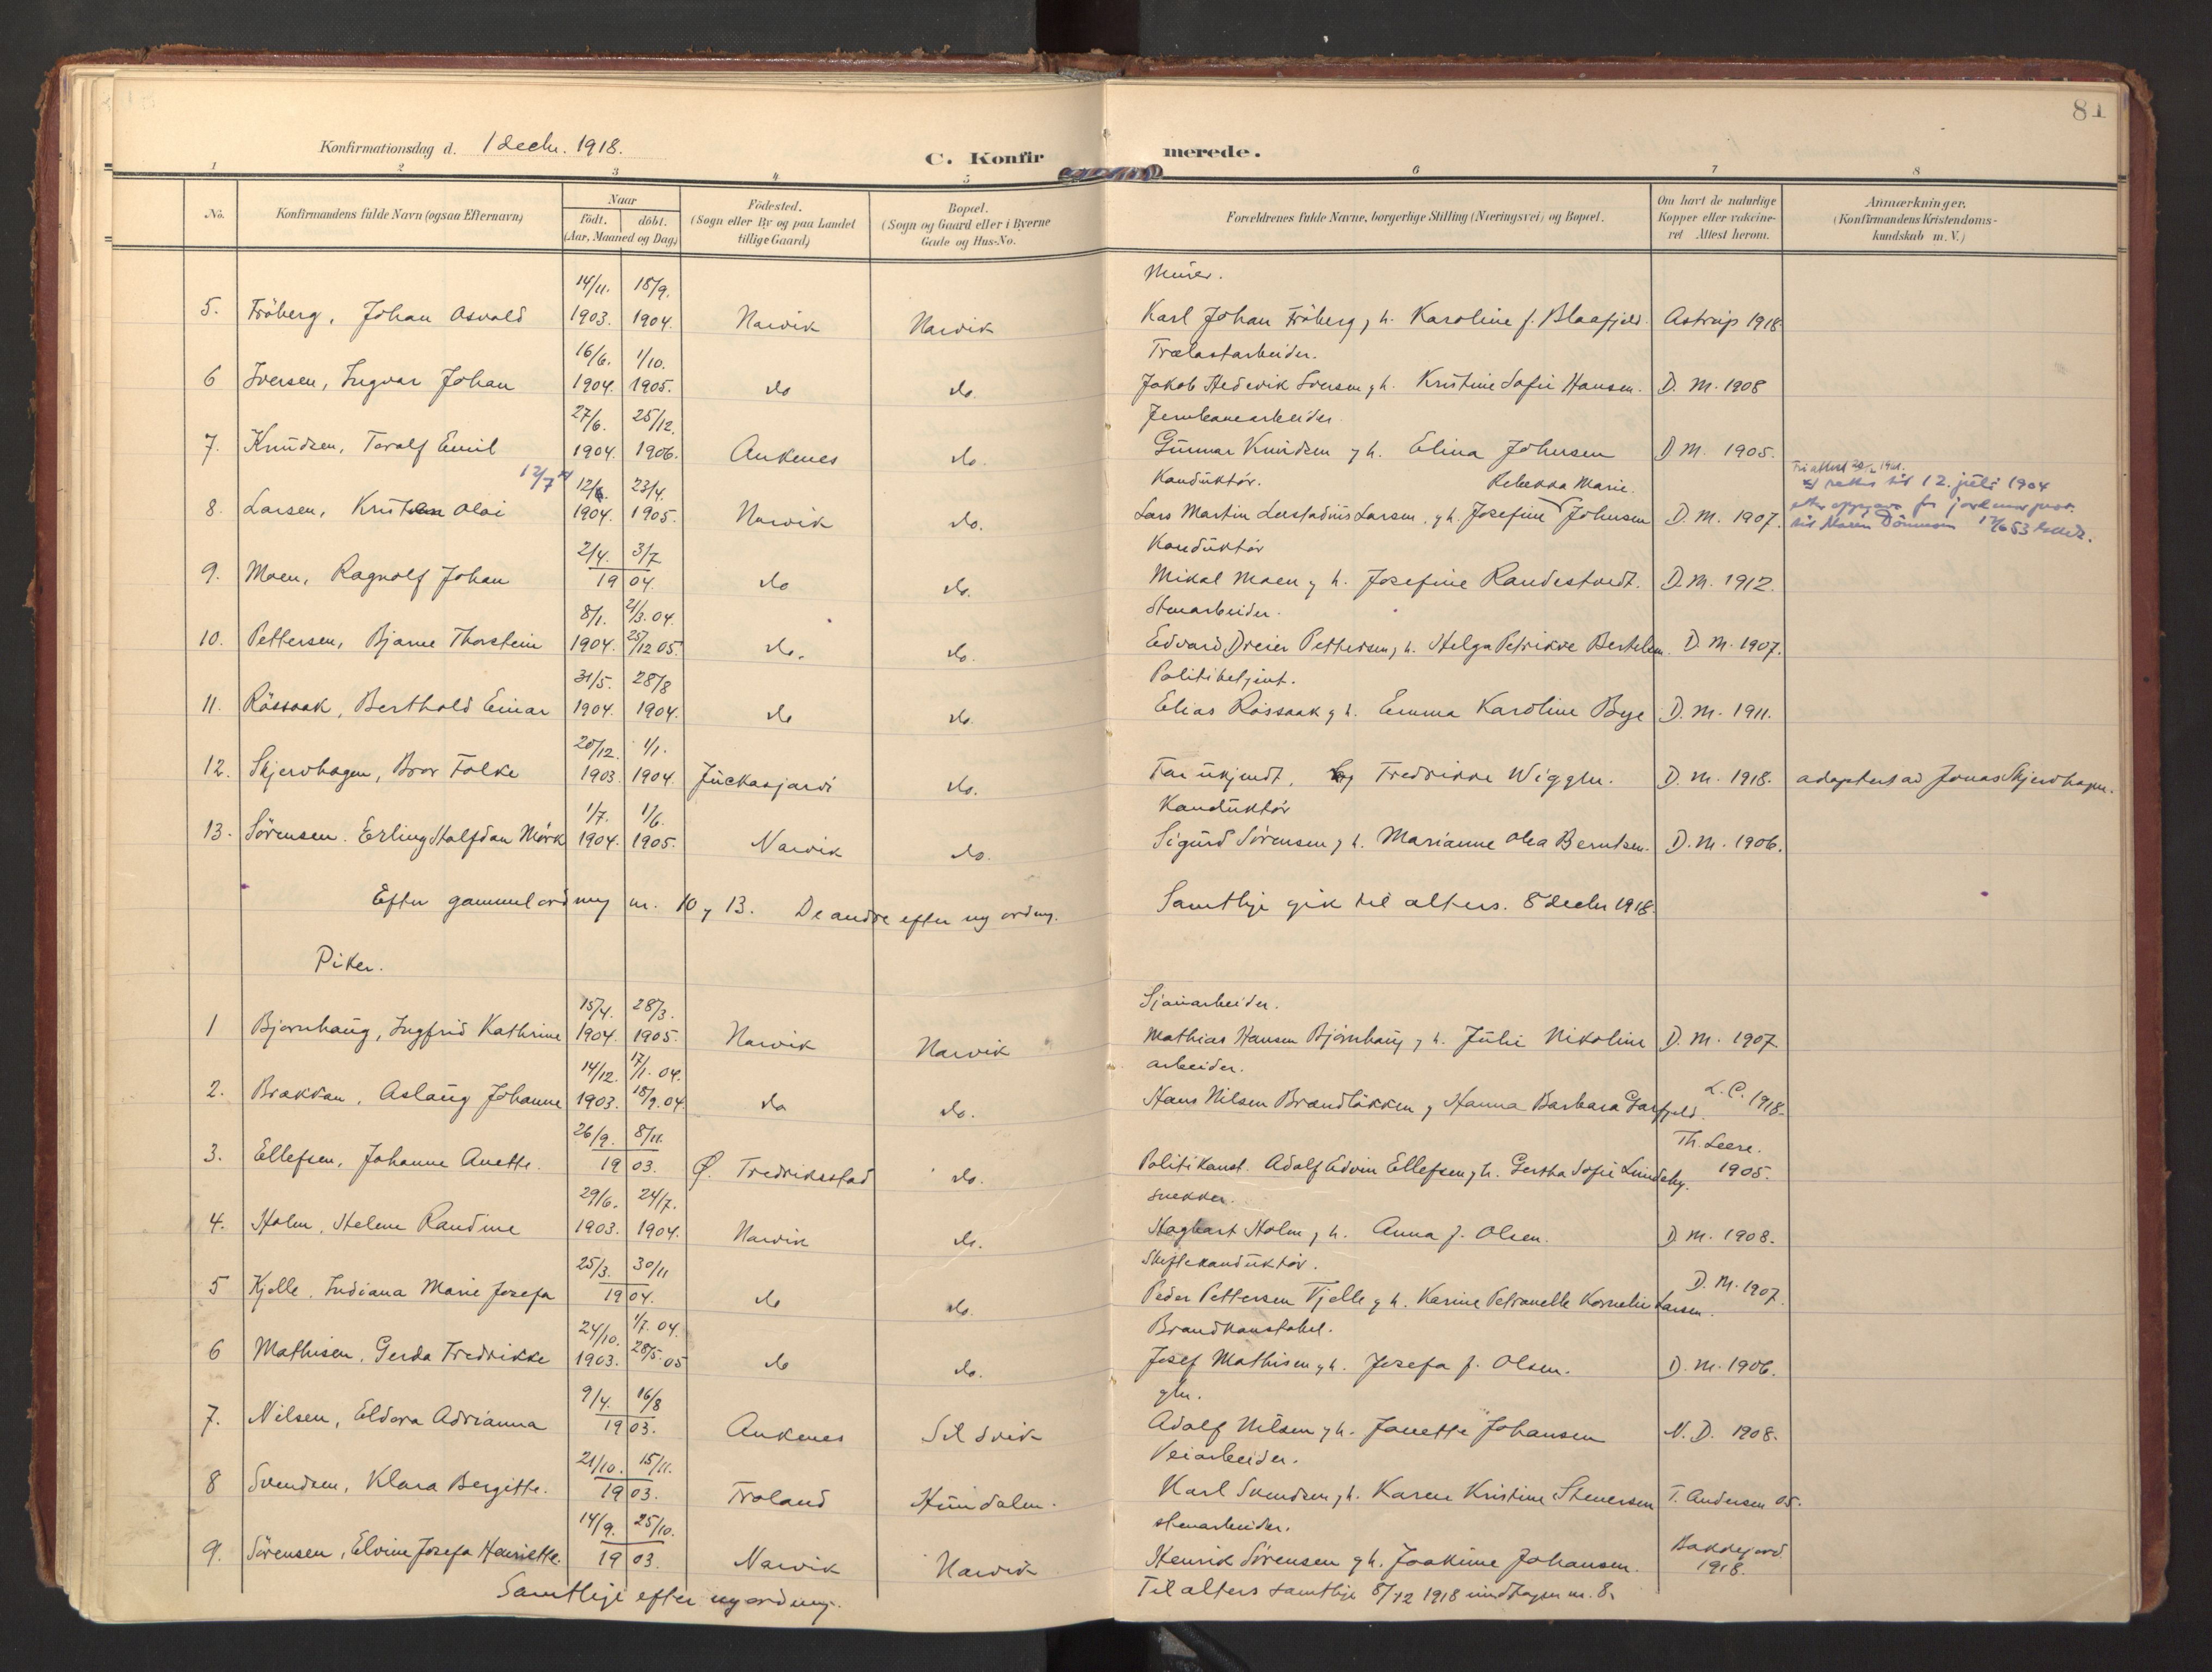 81
Konfirmationsdag d. 1 decbr. 1918.
C. Konfir merede.
1 2 3 4 5 6 7 8
No.
Konfirmandens fulde Navn (ogsaa Efternavn)
Naar
födt. döbt.
(Aar, Maaned og Dag)
Födested.
(Sogn eller By og paa Landet
tillige Gaard)
Bopæl.
(Sogn og Gaard eller i Byerne
Gade og Hus-No.
Forældrenes fulde Navne, borgerlige Stilling (Næringsvei) og Bopæl.
Om havt de naturlige
Kopper eller vakcine-
ret Attest herom.
Anmærkninger.
(Konfirmandens Kristendoms-
kundskab m. V.)
14/11. 18/9. Murer.
5. Fröberg, Johan Osvald 1903. 1904. Narvik Narvik Karl Johan Fröberg, h. Karoline f. Blaafjeld. Astrup 1918
16/6. 1/10. Trælastarbeider.
6 Iversen, Ingvar Johan 1904. 1905. do do. Jakob Hedevik Iversen, h. Kristine Sofie Hansen. D. M. 1908
27/6. 25/12. Jernbanearbeider
7. Knudsen, Toralf Emil 1904. 1906. Ankenes do. Gunnar Knudsen, h. Elina Johnsen D M. 1905.
12/7 12/6. 23/4. Konduktör. Rebekka Marie.
8. Larsen, Kristen Olai 1904. 1905. Narvik do. Lars Martin Lestadius Larsen, h. Josefine Johnsen D. M. 1907. rettes til 12. juli 1904
2/4. 3/7 Konduktör
9. Moen, Ragnolf Johan 19 04. do do. Mikal Moen, h. Josefine Randestvedt. D. M. 1912.
8/1. 2/3. 04. Stenarbeider.
10. Pettersen, Bjarne Thorstein 1904. 25/12 05. do. do. Edvard Dreier Pettersen, h. Helga Petrikke Bertelsen. D. M. 1907.
31/5. 28/8 Politibetjent.
11. Rössaak, Berthold Einar 1904. 1904. do do. Elias Rössaak, h. Emma Karoline Bye D. M. 1911.
20/12. 1/1.
12. Skjervhagen, Bror Folke 1903. 1904. Juckasjarvi do. Far ukjendt, Fredrikke Wiggen. D. M. 1918. adoptert av Jonas Skjervhagen.
1/7. 1/6. Konduktör
13. Sörensen. Erling Halfdan Mörk 1904. 1905. Narvik do. Sigurd Sörensen, h. Marianne Olea Berntsen. D. M. 1906.
Efter gammel ordning nr. 10, 13. De andre efter ny ordng. Samtlige gik til alters. 8 decbr 1918.
Piker.
15/4. 28/3. Sjauarbeider.
1 Bjørnhaug, Ingfrid Kathrine 1904. 1905. Narvik Narvik Mathias Hansen Bjørnhaug, h. Julie Nikoline D. M. 1907.
14/12. 17/1. 04. arbeider.
2. Brakkan, Aslaug Johanne 1903. 18/9. 04. do do. Hans Nilsen Brandlökken, Hanna Barbara L. C. 1918.
26/9. 8/11. Th. Leere.
3. Ellefsen, Johanne Anette. 19 03. Ø. Fredriksstad do. Politikonst. Adolf Edvin Ellefsen, h. Gertha Sofie Lundeby. 1905.
29/6. 24/7. snekker.
4. Holm, Helene Randine 1903. 1904. Narvik do. Hagbart Holm, h. Anna f. Olsen. D. M. 1908.
25/3. 30/11 Skiftekonduktör.
5 Kjelle, Indiana Marie Josefa 19 04. do do. Peder Pettersen Fjelle, h. Karine Petronelle Kornelie Larsen. D. M. 1907.
24/10. 1/7. 04. Brandkonstabel.
6 Mathisen, Gerda Fredrikke 1903. 28/5. 05 do do. Josef Mathisen, h. Josefa f. Olsen. D. M. 1906.
9/4. 16/8
7. Nilsen, Eldora Adrianna 19 03. Ankenes Sildvik Adolf Nilsen, h. Janette Johansen N. D. 1908.
21/10. 15/11. Veiarbeider.
8 Svendsen, Klara Bergitte. 19 03. Froland Hundalen. Karl Svendsen, h. Karen Kristine Stenersen T. Andersen 05.
14/9. 25/10. stenarbeider.
9. Sörensen, Elvine Josefa Henriette. 19 03. Narvik Narvik Henrik Sörensen, h. Joakime Johansen. Bakkejord 1918.
Samtlige efter ny ordning. Til alters samtlige 8/12 1918 undtagen nr. 8.